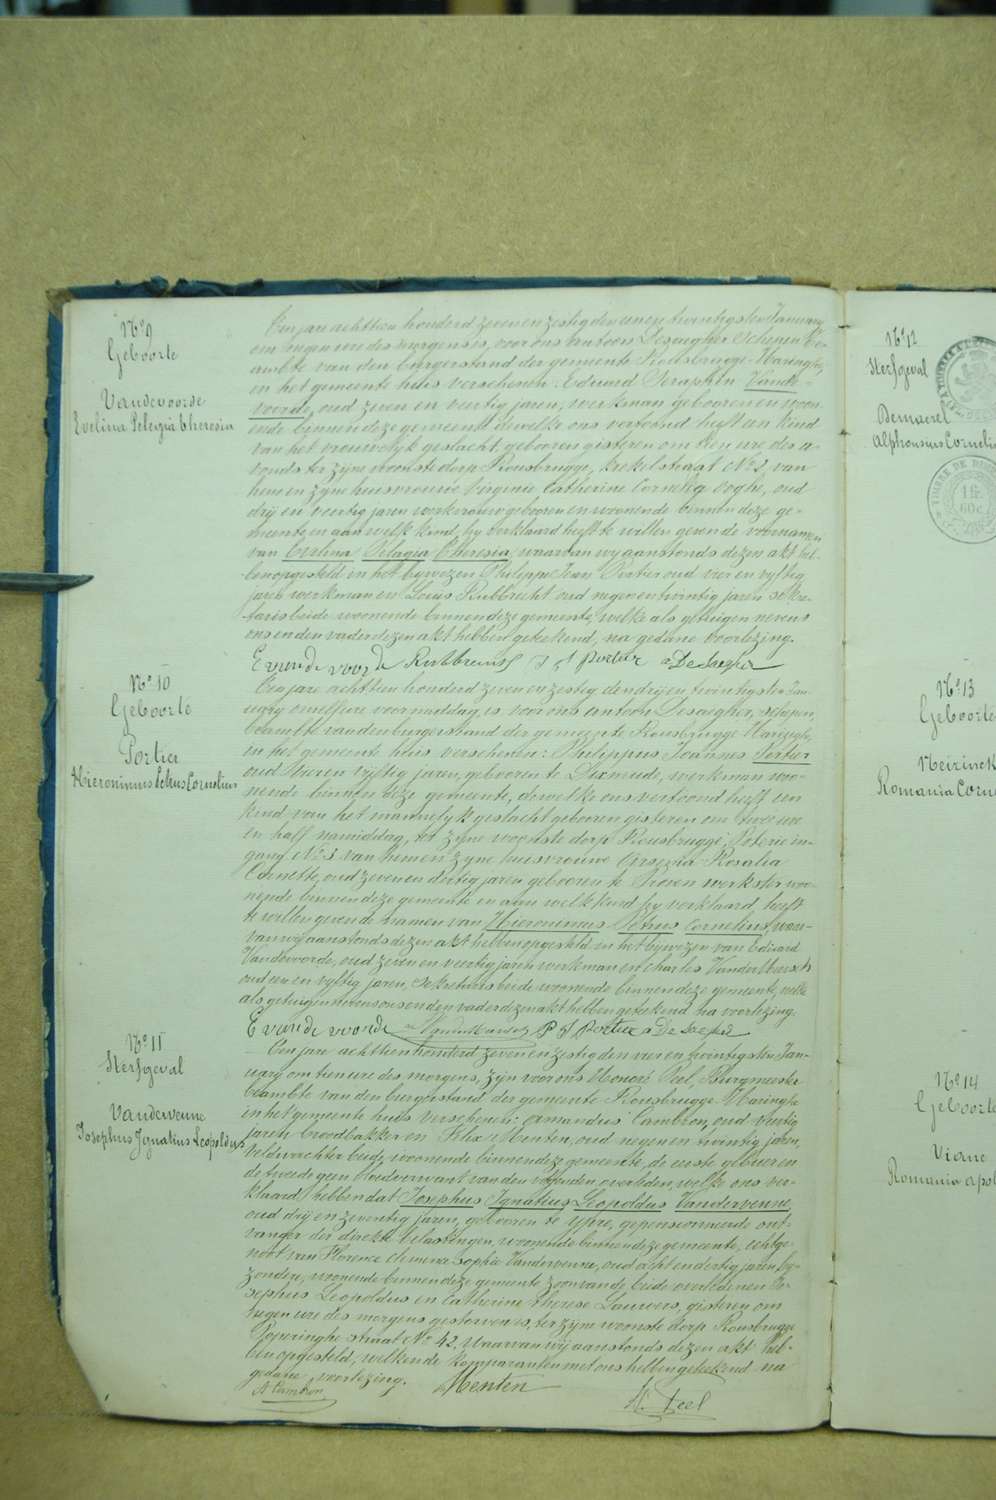 N° 9
Geboorte
Vandevoorde
Evelina Pelagia Theresia
Een jare achttien honderd zeven en zestig den eenen twintigsten January
om negen ure des morgens, voor ons Antoon Desaegher Schepen be-
ambte van den burgerstand der gemeente Rousbrugge-Haringhe,
en het gemeente huis verschenen: Eduard Seraphin Vande-
voorde, oud zeven en veertig jaren, werkman geboren en woon-
ende binnen deze gemeente dewelke ons vertoond heeft een kind
van het vrouwelyk geslacht, geboren gisteren om tien ure des a-
vonds ter zyne woonste dorp Rousbrugge, kerkelstraat N° 2, van
hem en zyne huisvrouwe Virginie Catherine Cornelia Coghe, oud
dry en veertig jaren werkvrouw geboren en woonende binnen deze ge-
meente en aan welk kind hy verklaard heeft te willen geven de voornamen
van Evelina Pelagia Theresia, waarvan wy aanstonds dezen akt heb-
ben opgesteld in het bywezen Philippe Jean Portier oud vier en vyftig
jaren werkman en Louis Rubbrecht oud negen en twintig jaren sekre-
taris beide woonende binnen deze gemeente, welke als getuigen nevens
ons en den vader dezen akt hebben geteekend, na gedane voorlezing.
E vande voorde Portier A Desaegher
N° 10
Geboorte
Portier
Hieronimus Petrus Cornelius
Een jare achttien honderd zeven en zestig den dry en twintigsten Jan-
uary om elf ure voormiddag, is voor ons Antoon Desaegher, schepen,
beambte van den burgerstand der gemeente Rousbrugge-Haringhe,
in het gemeente huis verschenen: Philippus Joannes Portier
oud vier en vyftig jaren, geboren te Dixmude, werkman woo-
nende binnen deze gemeente, dewelke ons vertoond heeft een
kind van het mannelyk geslacht geboren gisteren om twee ure
en half namiddag, ter zyne woonste dorp Rousbrugge, Poterie in-
gang N° 3 van hem en zyne huisvrouwe Rosalia
Cornette, oud zeven en dertig jaren geboren te Proven werkster woo-
nende binnen deze gemeente en aan welk kind hy verklaard heeft
te willen geven de namen van Hieronimus Petrus Cornelius, waar-
van wy aanstonds dezen akt hebben opgesteld in het bywezen van Eduard
Vandevoorde, oud zeven en veertig jaren werkman en Charles Vander Meersch
oud een en vyftig jaren, sekretaris beide woonende binnen deze gemeente, welke
als getuigen nevens ons en den vader dezen akt hebben geteekend na voorlezing.
E vande voorde P J portier A Desaegher
N° 11
Sterfgeval
Vandervenne
Josephus Ignatius Leopoldus
Een jare achttien honderd zeven en zestig den vier en twintigsten Jan-
uary om tien ure des morgens, zyn voor ons Honoré Peel, Burgmeester
beambte van den burgerstand der gemeente Rousbrugge-Haringhe
in het gemeente huis verschenen: Armandus Cambron, oud veertig
jaren broodbakker en Felix Menten, oud negen en twintig jaren,
veldwachter beide woonende binnen deze gemeente, de eerste gebuer en
de tweede geen bloedverwant van den volgenden overleden, welke ons ver-
klaard hebben dat Josephus Ignatius Leopoldus Vandervenne,
oud dry en zeventig jaren, geboren te Ypre, gepensionneerde ont-
vanger der direkte belastingen, woonende binnen deze gemeente, echtge-
noot van Florence Clemence Sophie Vandervenne, oud acht en dertig jaren by-
zondere, woonende binnen deze gemeente zoon van de beide overledenen Jo-
sephus Leopoldus en Catherine Therese Lauwers, gisteren om
negen ure des morgens gestorven is, ter zyne woonste dorp Rousbrugge
Poperinghe straat N° 42. Waarvan wy aanstonds dezen akt heb-
ben opgesteld, welken de komparanten met ons hebben geteekend na
gedane voorlezing.
A Cambron Menten H. Peel
N° 12
Sterfgeval
Demaerel
Alphonsius Cornelius
TIMBRE DE
1 fr.
60 c.
N° 13
Geboorte
Meirinck
Romania Corn
N° 14
Geboorte
Vierne
Romania Apol